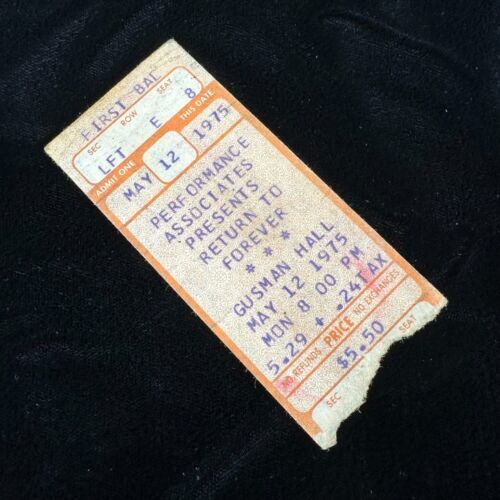 FIRST BAL
SEC ROW SEAT
LFT E 8
ADMIT ONE THIS DATE
MAY 12 1975
PERFORMANCE
ASSOCIATES
PRESENTS
RETURN TO
FOREVER
* * *
GUSMAN HALL
MAY 12 1975
MON 8 00 PM
5.29 + .24TAX
NO REFUNDS PRICE NO EXCHANGES
$5.50
SEC SEAT